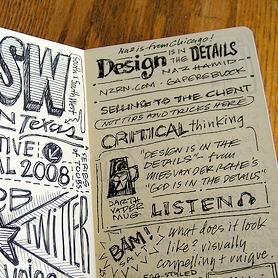 SW
South x Southwest
IN Texas!
TIVE
AL 2008
TWITTER
Naz is from Chicago!
Design IS IN THE DETAILS
NAZ HAMID
NZRN.COM - GAPERSBLOCK
SELLING TO THE CLIENT
NOT TIPS AND TRICKS HERE
CRITICAL thinking
"DESIGN IS IN THE
DETAILS" - from
MIES VAN DER ROHE'S
"GOD IS IN THE DETAILS"
DARTH
VADER
MUG.
LISTEN
BAM!
what does it look
like? visually
compelling + unique